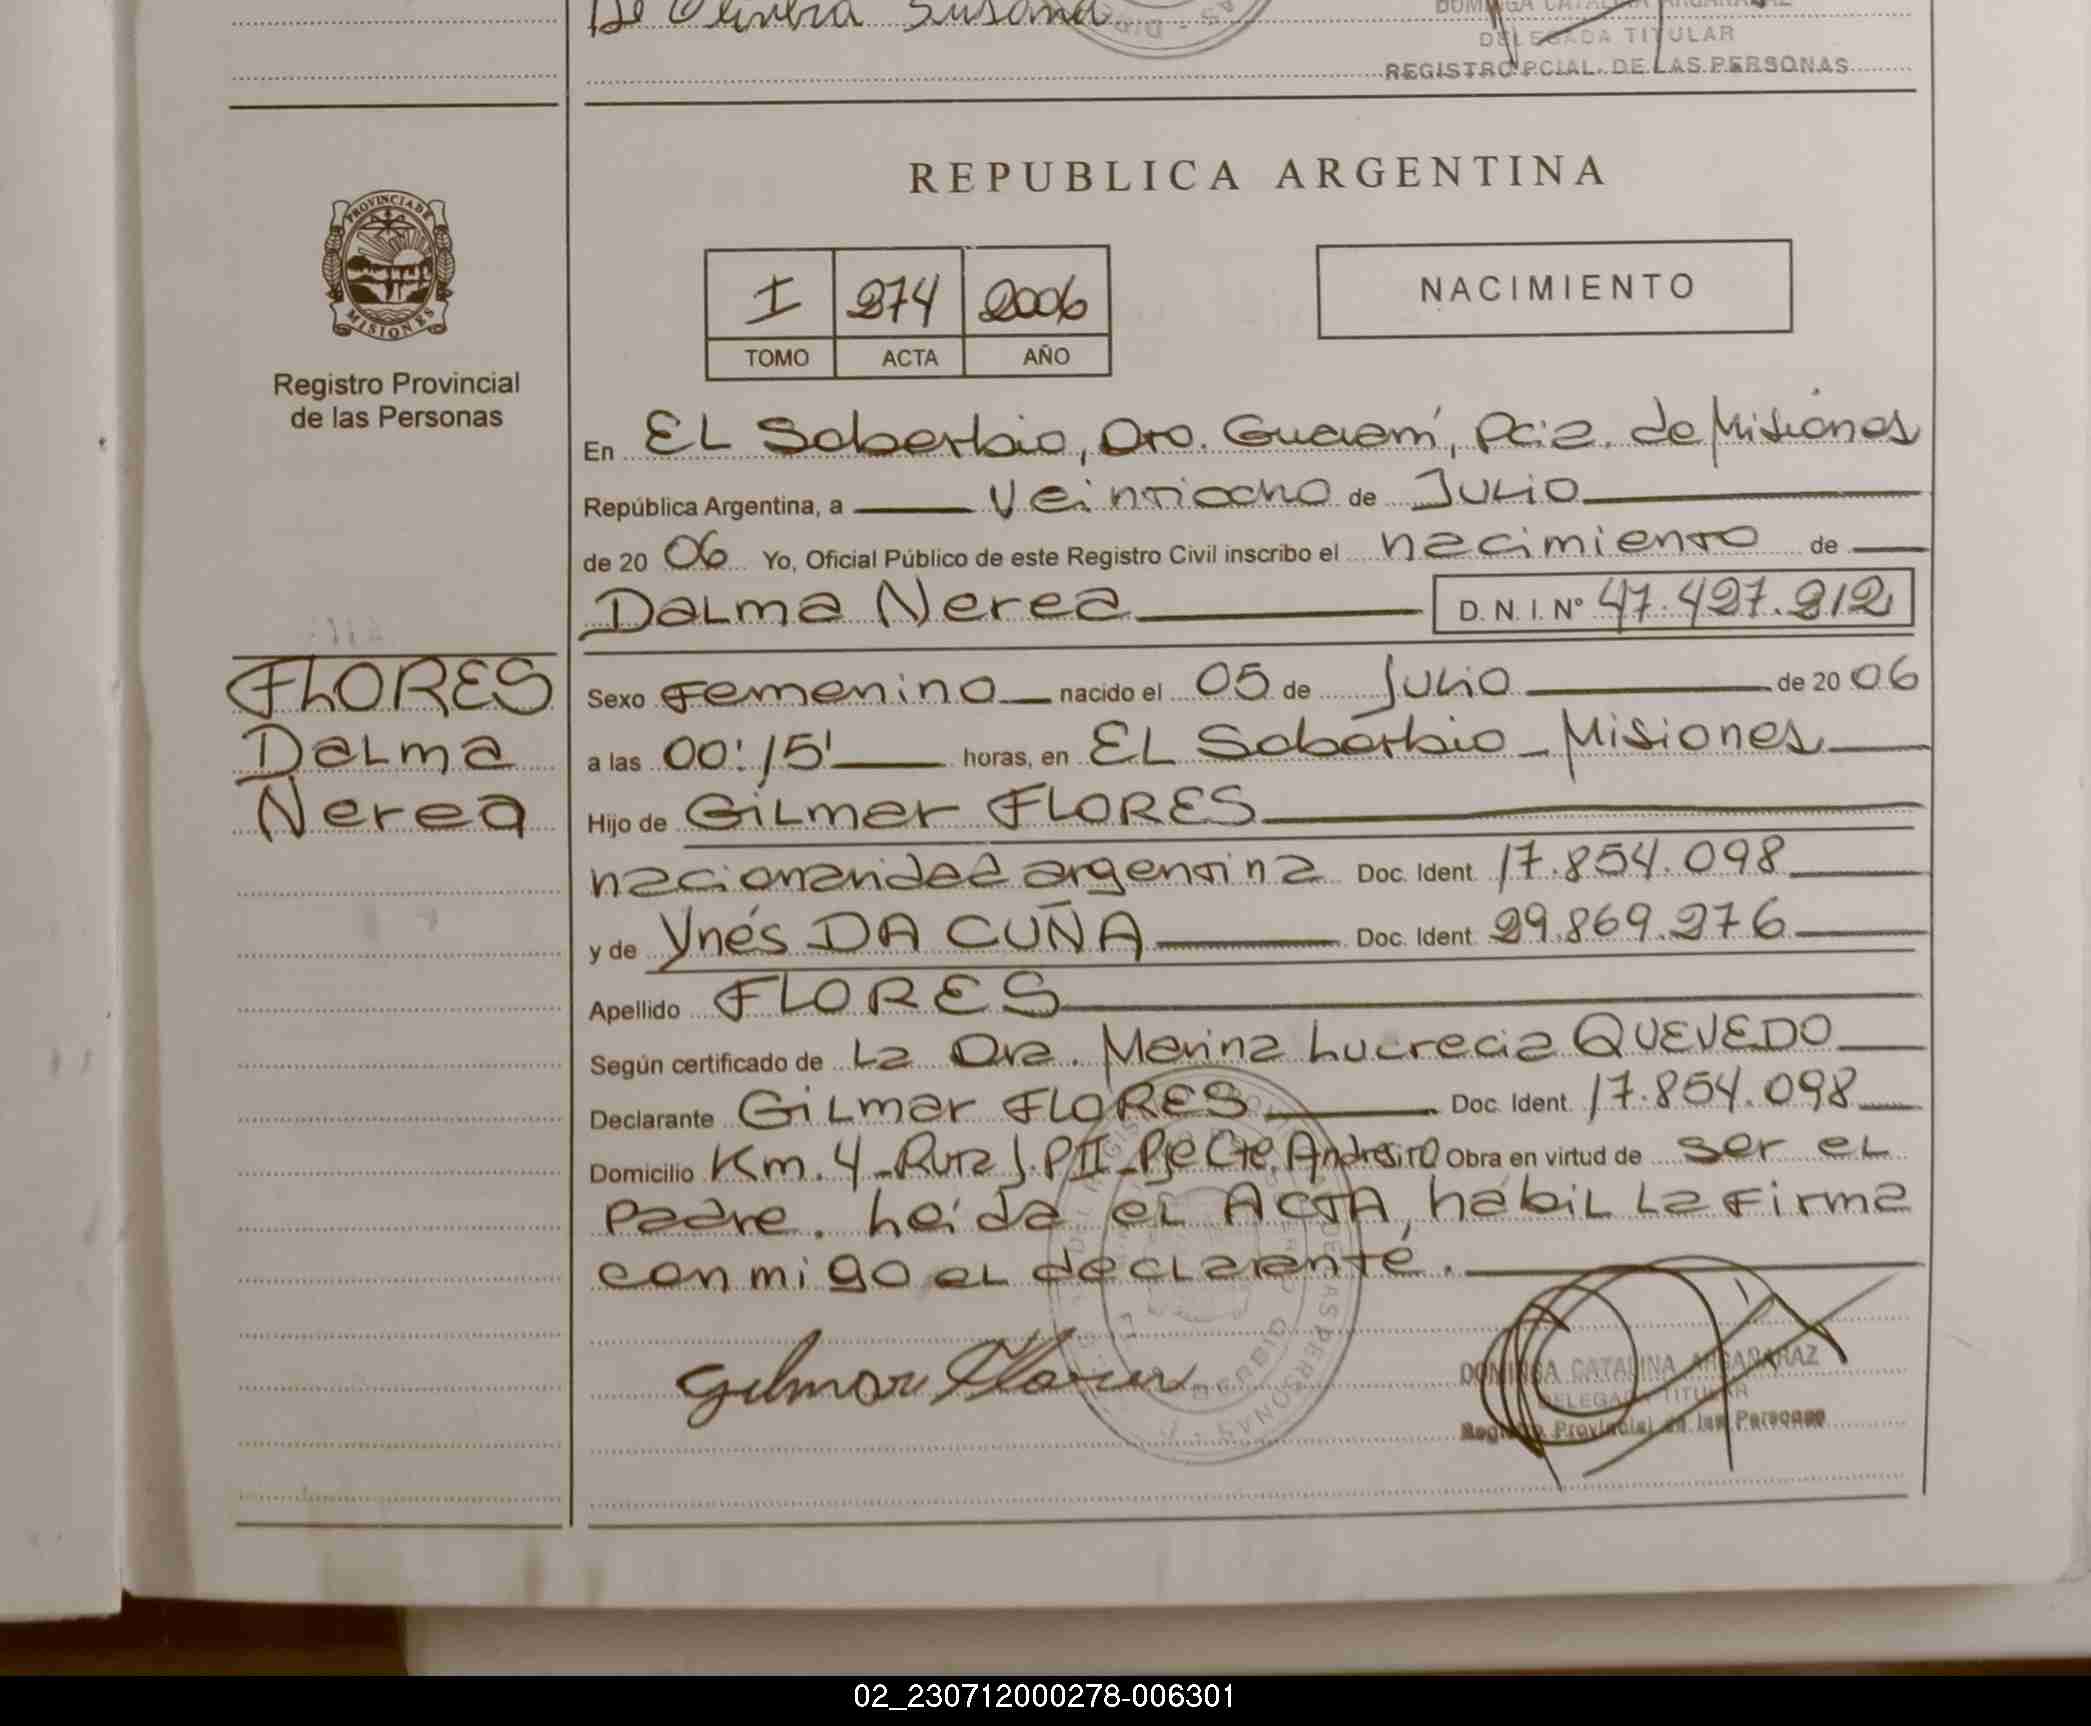 De Olivera Susana
DELEGADA TITULAR
REGISTRO PCIAL. DE LAS PERSONAS
REPUBLICA ARGENTINA
PROVINCIA DE
MISIONES
Registro Provincial
de las Personas
I 274 2006
TOMO ACTA AÑO
NACIMIENTO
En EL Soberbio, Dto. Guaraní, Pcia. de Misiones
República Argentina, a Veintiocho de Julio
de 20 06 Yo, Oficial Público de este Registro Civil inscribo el nacimiento de
Dalma Nerea D. N. I. Nº 47.427.212
FLORES
Dalma
Nerea
Sexo Femenino nacido el 05 de Julio de 20 06
a las 00:15' horas, en EL Soberbio - Misiones
Hijo de Gilmar FLORES
nacionalidad argentina Doc. Ident. 17.854.098
y de Ynés DA CUÑA Doc. Ident. 29.869.276
Apellido FLORES
Según certificado de La Dra. Marina Lucrecia QUEVEDO
Declarante Gilmar FLORES Doc. Ident. 17.854.098
Domicilio Km. 4 - Ruta J. PII - Pje Cte. Andresito Obra en virtud de ser el
padre. Leída el ACTA, hábil la firma
conmigo el declarante.
Gilmar Flores
DOMINGA CATALINA ARGAÑARAZ
DELEGADA TITULAR
Registro Provincial de las Personas
02_230712000278-006301